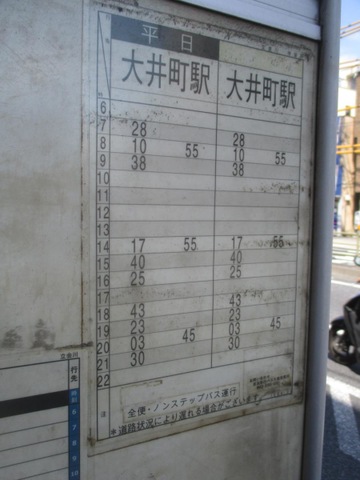 平日
大井町駅 大井町駅
6
7 28
8 10 55 28
9 38 10 55
10 38
11
12
13
14 17 55 17 55
15 40 40
16 25 25
17
18 43 43
19 23 23
20 03 45 03 45
21 30 30
22
全便・ノンステップバス運行
*道路状況により遅れる場合がございます
立会川
行先
6
7
8
9
10